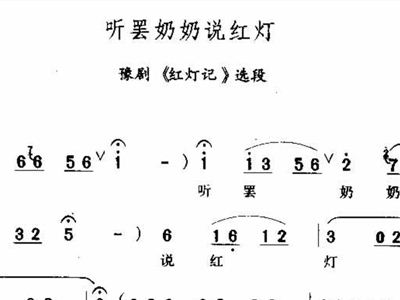 听罢奶奶说红灯
豫剧《红灯记》选段
6 6 5 6 ∨ 1 - ) 1 1 3 5 6 ∨ 2 7
听 罢 奶 奶
3 2 5 - ) 6 1 6 1 2 3 0 2
说 红 灯